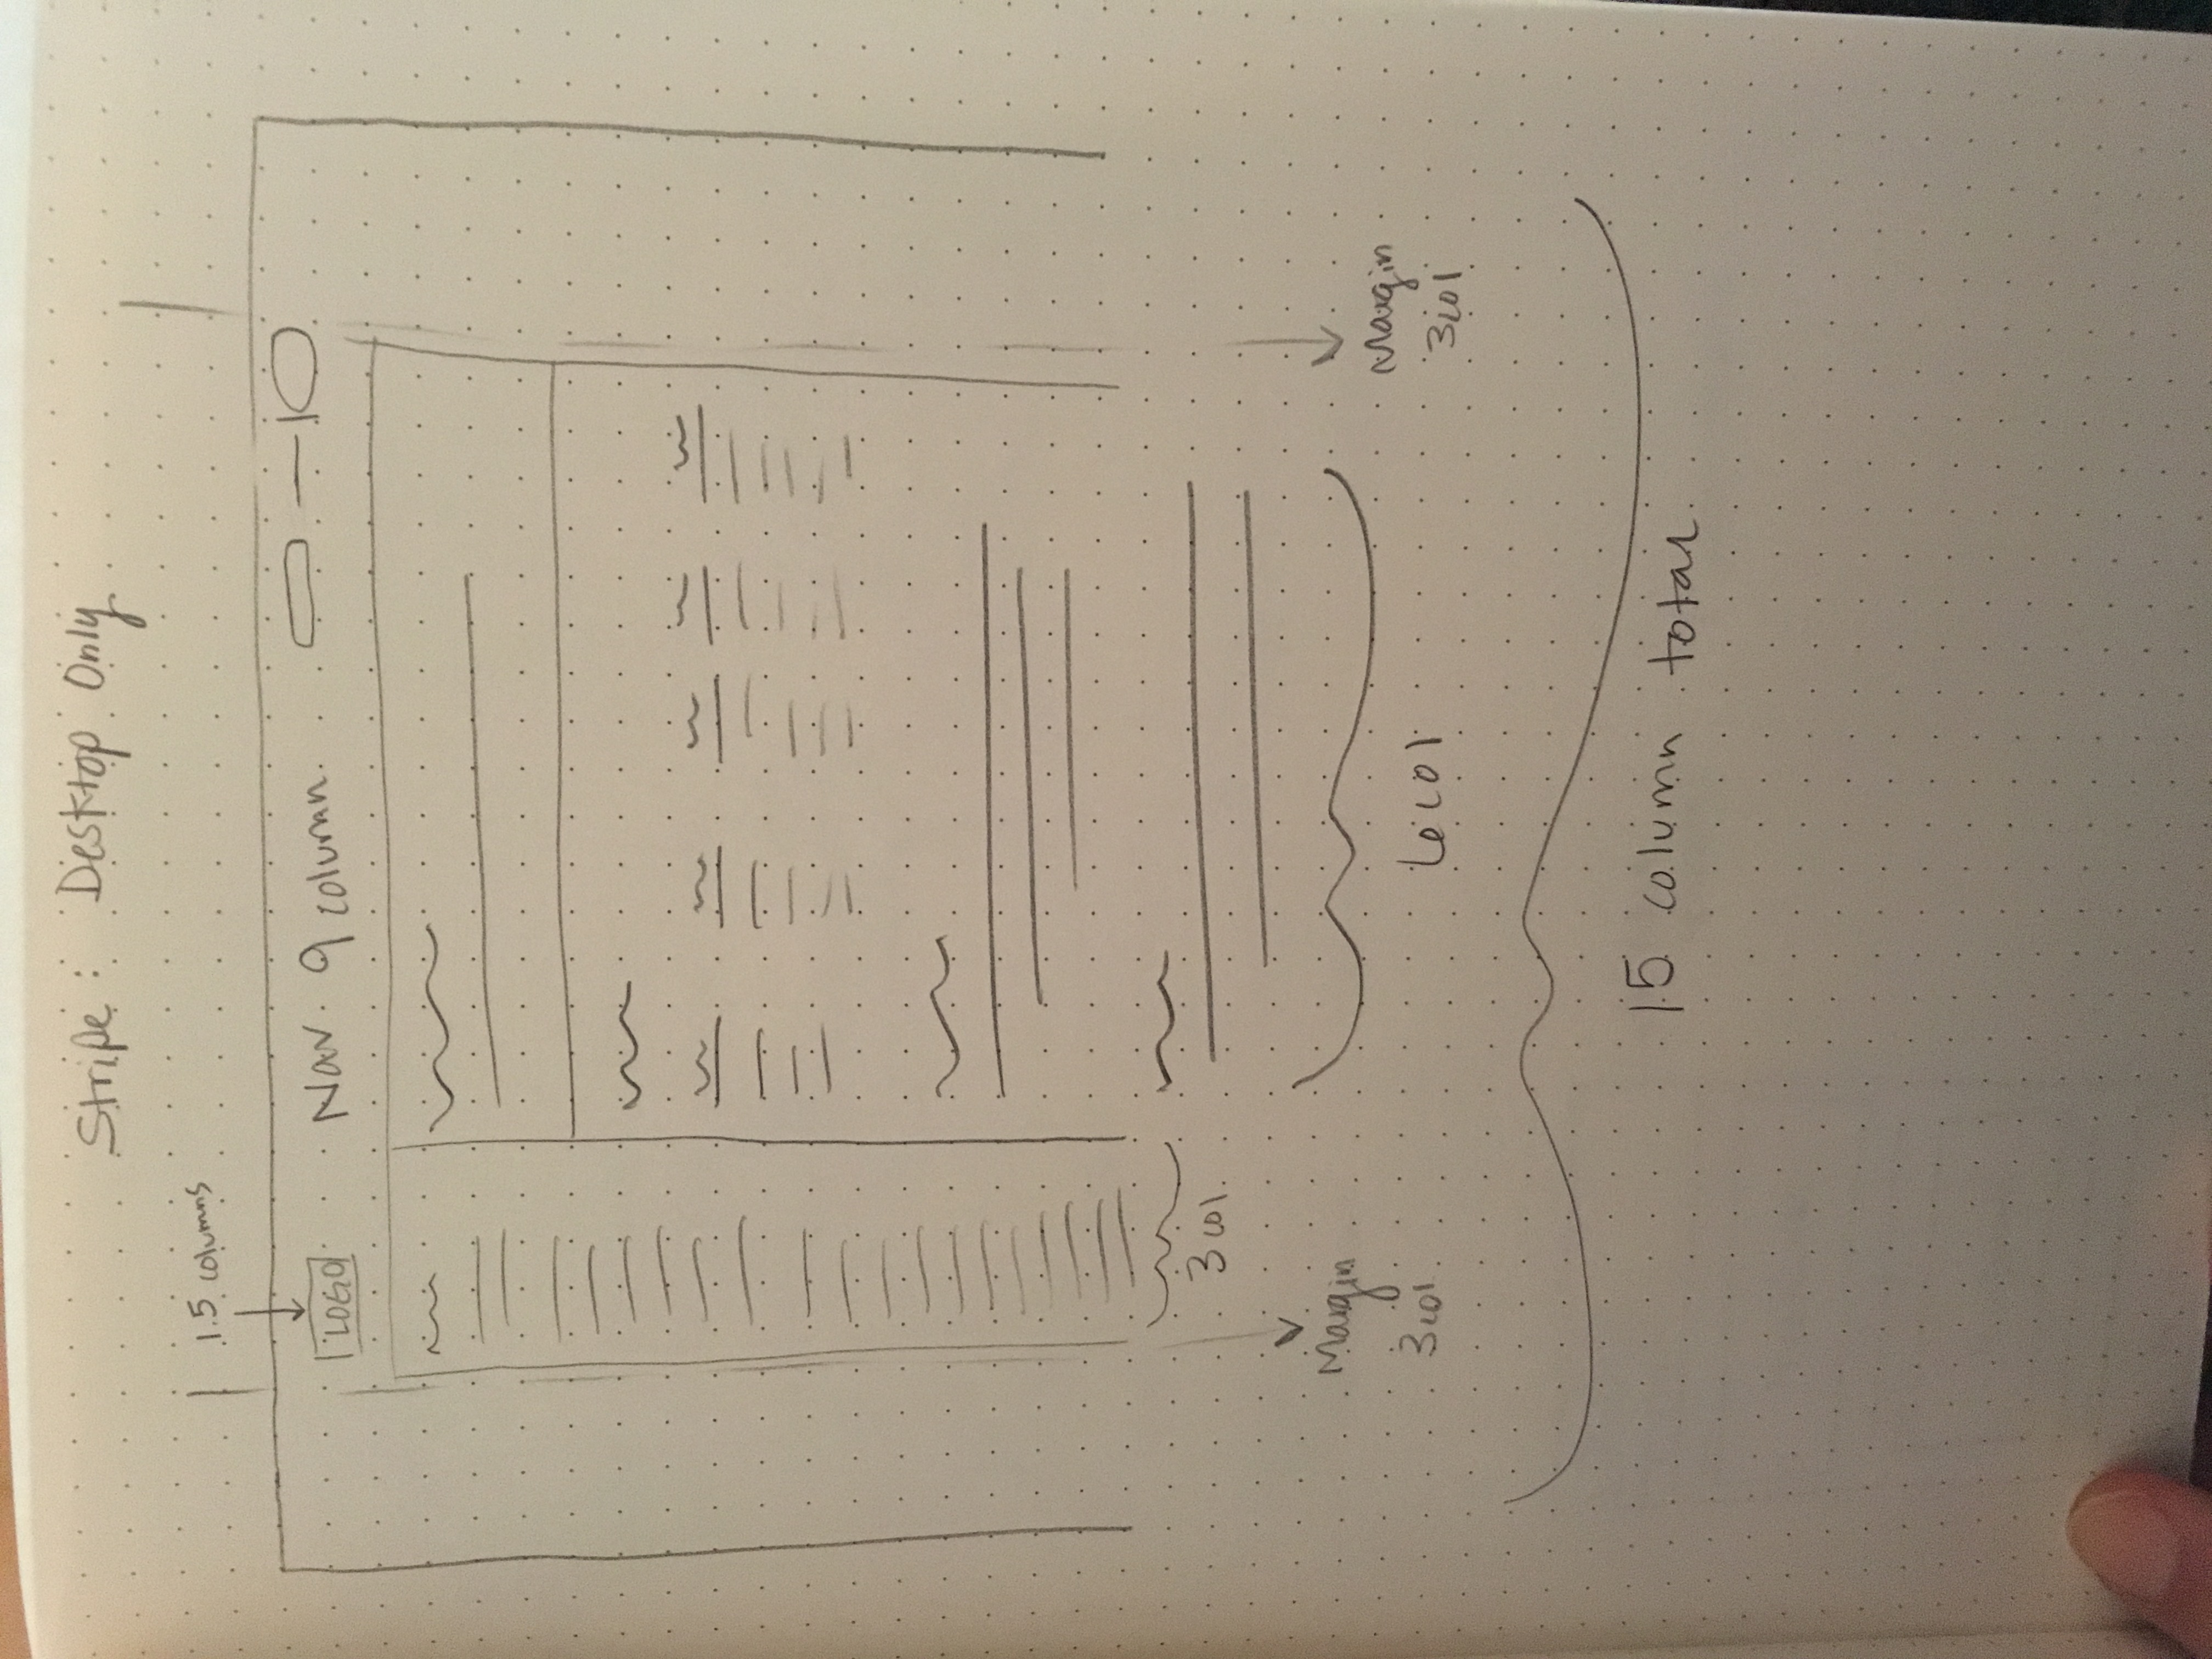 Stripe: Desktop Only
1.5 columns
LOGO
Nav. 9 column
3 col.
Margin
3 col.
6 col
Margin
3 col
15 column total